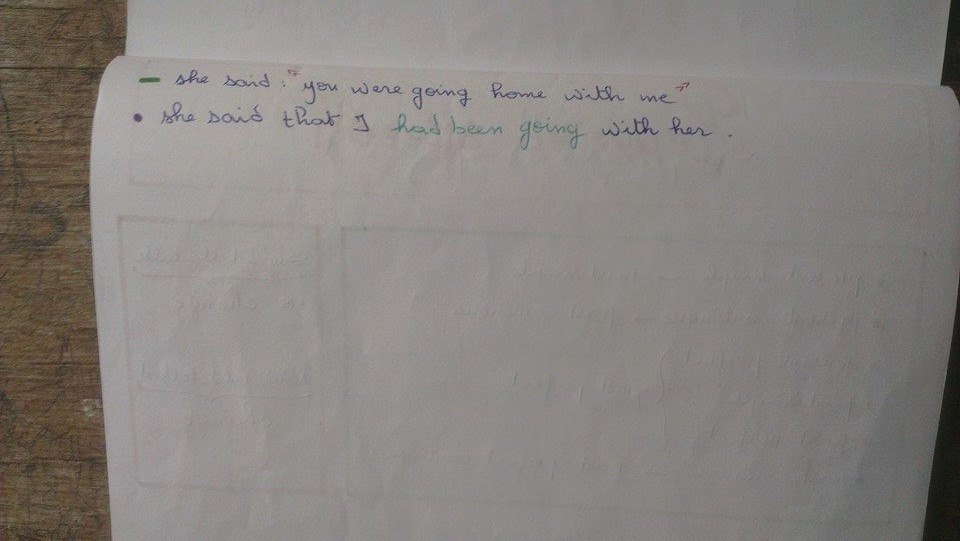 - she said: "you were going home with me"
• she said that I had been going with her.